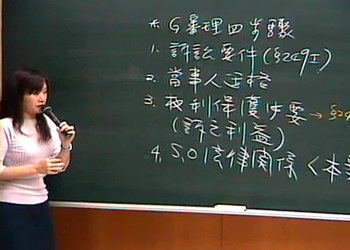 * G審理四步驟
1. 訴訟要件(§249I)
2. 當事人適格
3. 權利保護必要→§2
(訴之利益)
4. S.O法律關係<本